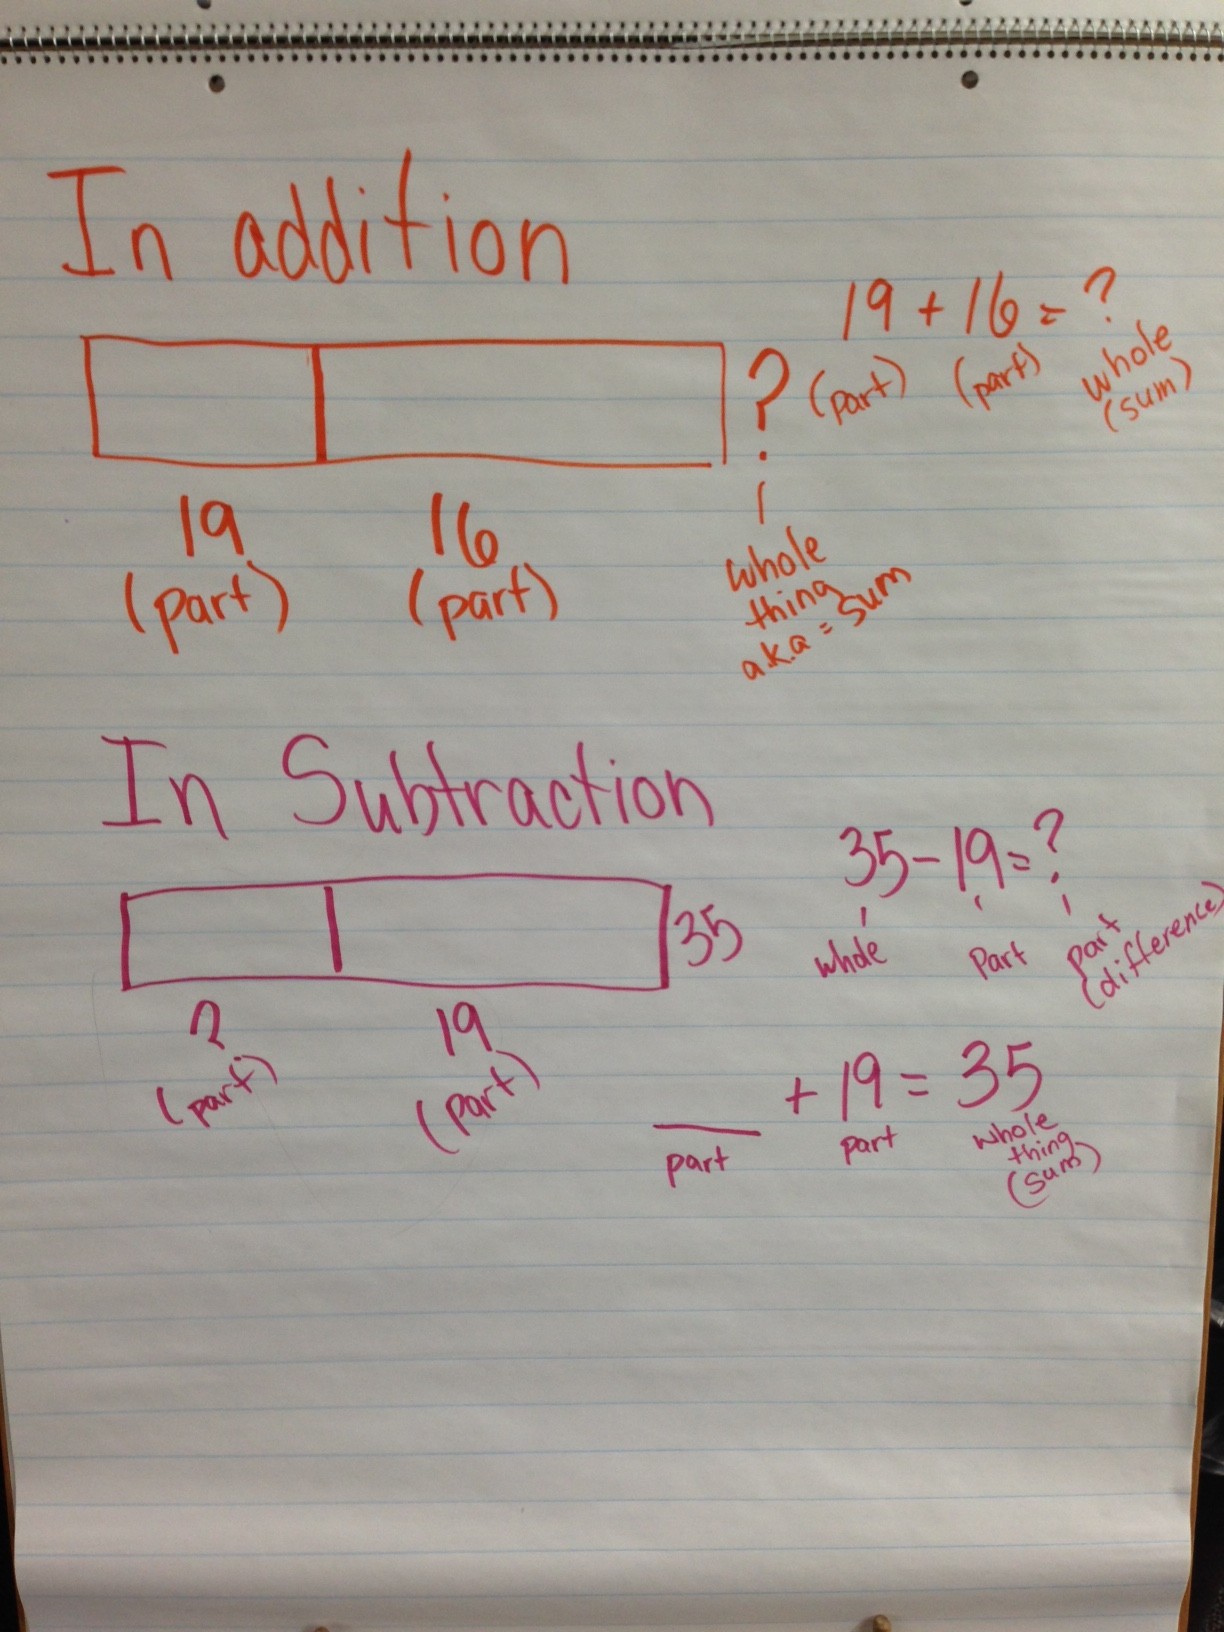 In addition
19 + 16 = ?
(part) (part) whole
(sum)
?
19 16
(part) (part)
whole
thing
a.k.a = sum
In Subtraction
35 - 19 = ?
whole Part part
(difference)
35
? 19
(part) (part)
___ + 19 = 35
part part whole
thing
(sum)